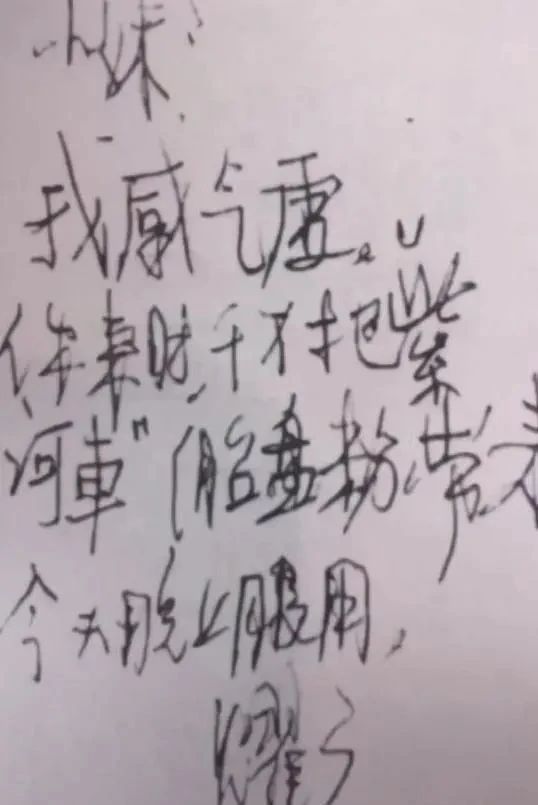 小妹:
我感气虚。
你来时,千万把"紫
河車"(胎盘粉)带来
今天晚上服用,